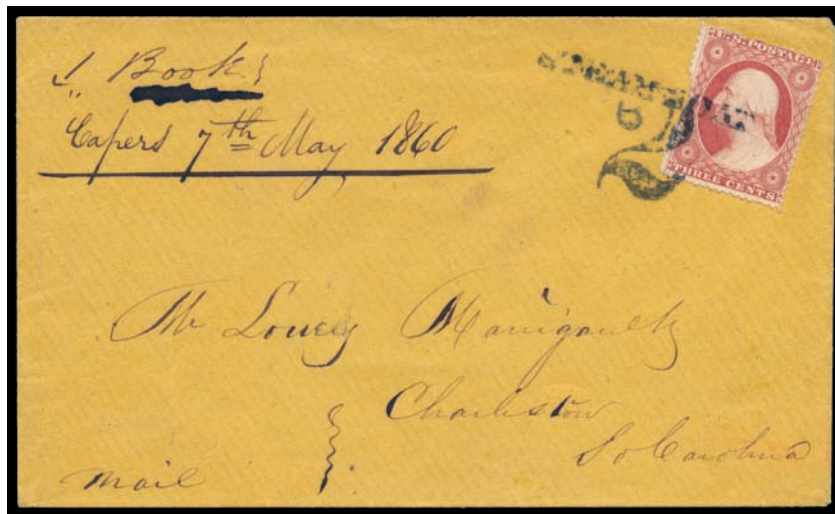 1 Book
Capers 7th May 1860
STEAMBOAT
2
U.S. POSTAGE
THREE CENTS
Mr Louis Manigault
Charleston
So Carolina
mail